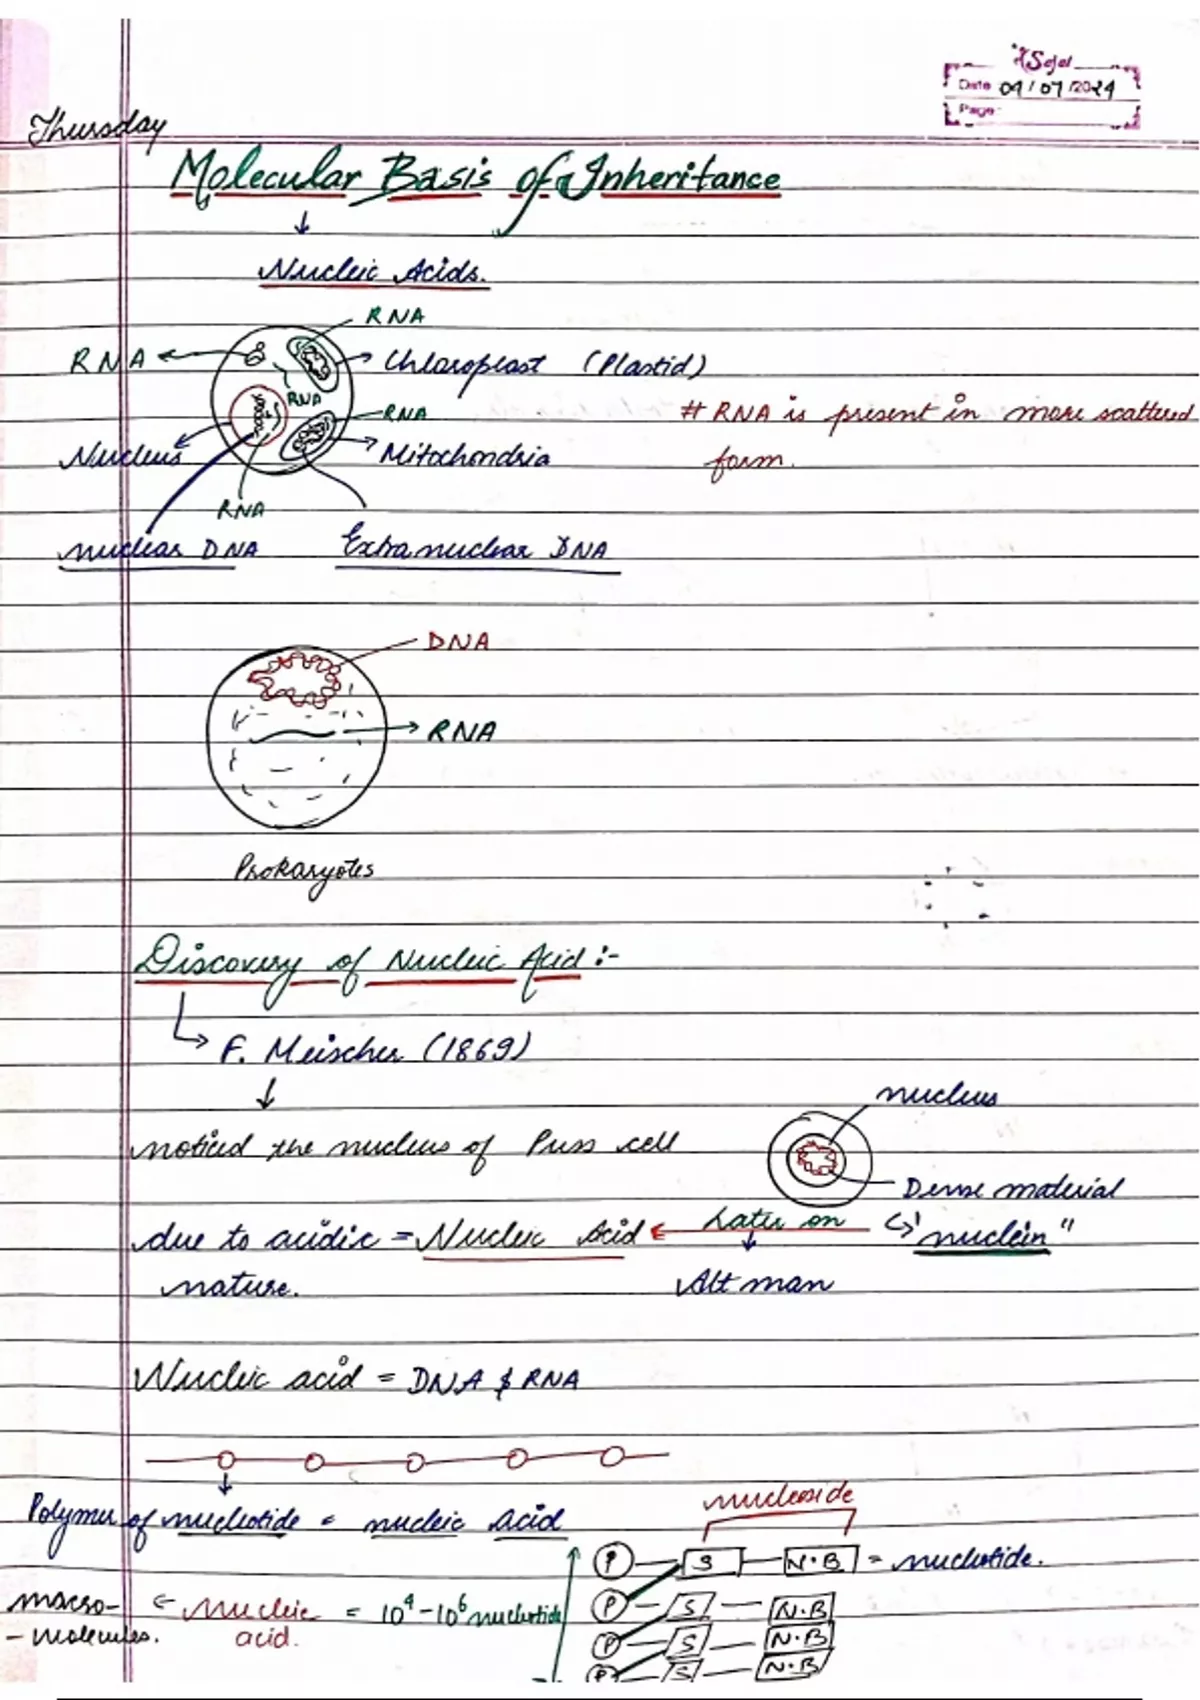 Sejal
Date 04/07/2024
Page
Thursday
Molecular Basis of Inheritance
↓
Nucleic Acids.
RNA
RNA ← → Chloroplast (Plastid)
RNA
RNA # RNA is present in more scattered
Nucleus → Mitochondria form.
RNA
nuclear DNA Extranuclear DNA
DNA
→ RNA
Prokaryotes
Discovery of Nucleic Acid :-
↳ F. Meischer (1869)
↓
nucleus
noticed the nucleus of Puss cell
Dense material
due to acidic = Nucleic Acid ← Later on ↳ "nuclein"
nature. ↓ Altman
Nucleic acid = DNA & RNA
↓
nucleoside
Polymer of nucleotide = nucleic acid
P — S — N.B = nucleotide.
macro- ← nucleic = 10⁴-10⁶ nucleotide P — S — N.B
- molecules. acid. P — S — N.B
P — S — N.B